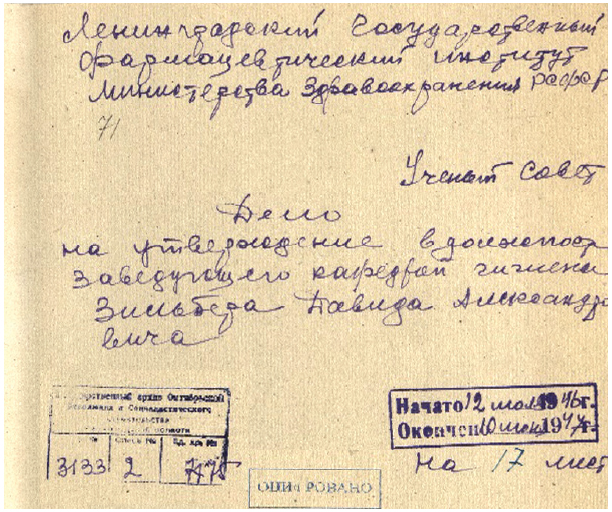 Ленинградский Государственный
фармацевтический институт
Министерства Здравоохранения РСФСР
71
Ученый Совет
Дело
на утверждение в должност
Заведующего кафедрой гигиены
Зильбера Давида Александро
вича
арственный архив Октябрьской
революции и Социалистического
строительства
области
Начато 12 1946г.
Окончено 10 1947г.
3133 2
На 17 лист
ОПИ РОВАНО